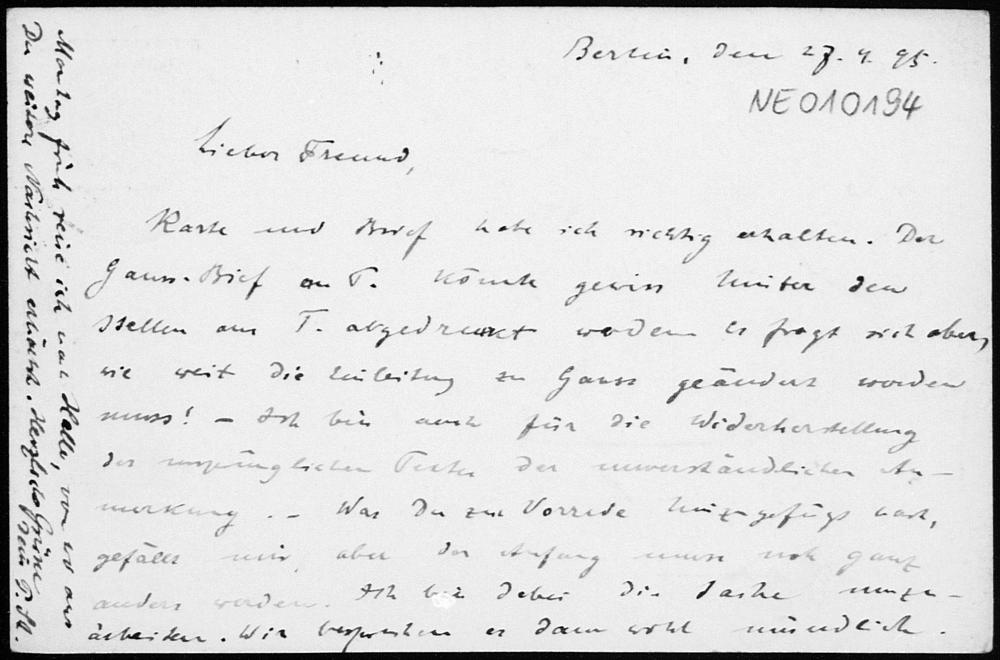 Berlin, den 27. 4. 95.
NE010194
Lieber Freund,
Karte und Brief habe ich richtig erhalten. Der
Gauss-Brief an T. könnte gewiss hinter den
Stellen aus T. abgedruckt werden es fragt sich aber,
wie weit die Einleitung zu Gauss geändert werden
muss! – Ich bin auch für die Widerherstellung
des ursprünglichen Textes der unverständlichen An-
merkung. – Was Du zur Vorrede hinzugefügt hast,
gefällt mir, aber der Anfang muss noch ganz
anders werden. Ich bin dabei die Sache umzu-
arbeiten. Wir besprechen es dann wohl mündlich.
Montag früh reise ich nach Halle, von wo aus
Du weitere Nachricht erhältst. Herzliche Grüsse
Dein P. St.